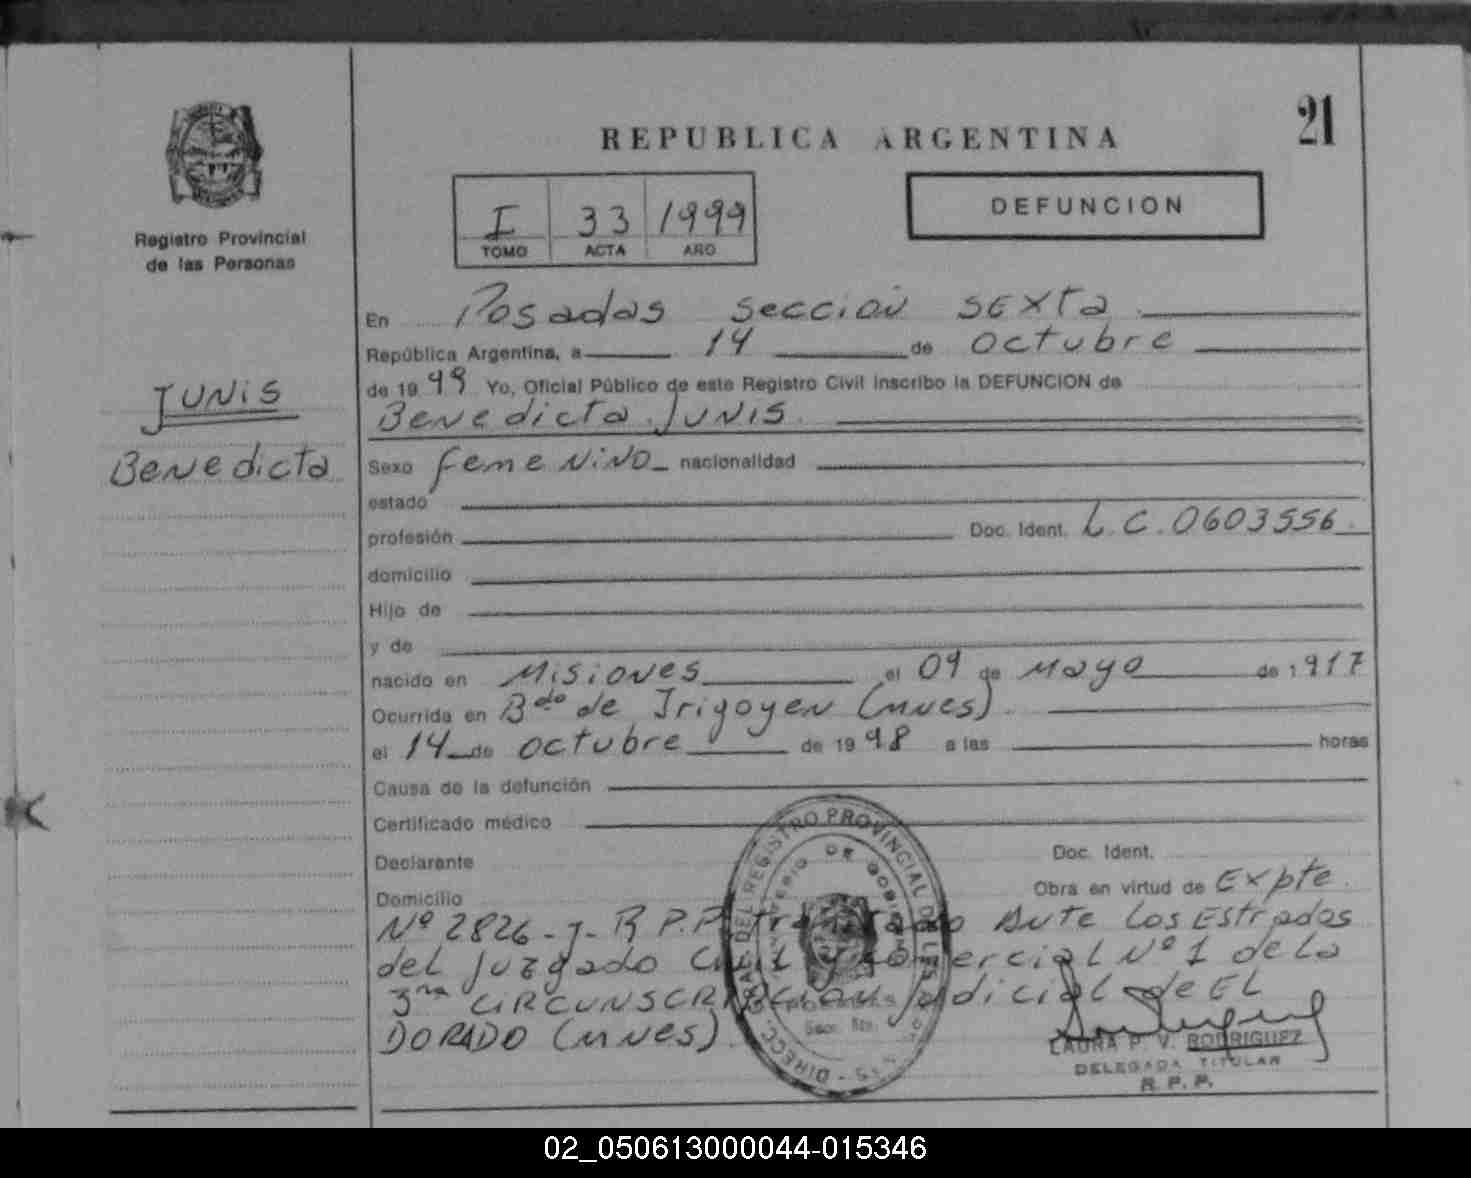 21
REPUBLICA ARGENTINA
I 33 1999
TOMO ACTA AÑO
DEFUNCION
Registro Provincial
de las Personas
JUNIS
Benedicta
En Posadas sección sexta
República Argentina, a 14 de octubre
de 1999 Yo, Oficial Público de este Registro Civil inscribo la DEFUNCION de
Benedicta JUNIS.
Sexo femenino nacionalidad
estado
profesión Doc. Ident. L.C. 0603556.
domicilio
Hijo de
y de
nacido en Misiones el 09 de mayo de 1917
Ocurrida en Bdo de Irigoyen (mnes).
el 14 de octubre de 1998 a las horas
Causa de la defunción
Certificado médico
Declarante Doc. Ident.
Domicilio Obra en virtud de Expte.
Nº 2826-J-R.P.P. tramitado ante los Estrados
del Juzgado Civil y Comercial Nº 1 de la
3ra Circunscripción Judicial de EL
DORADO (mnes).
DIRECC. GRAL. DEL REGISTRO PROVINCIAL DE LAS
DE GOBIERNO
POSADAS
Secc. 6ta.
LAURA P. V. RODRIGUEZ
DELEGADA TITULAR
R. P. P.
02_050613000044-015346